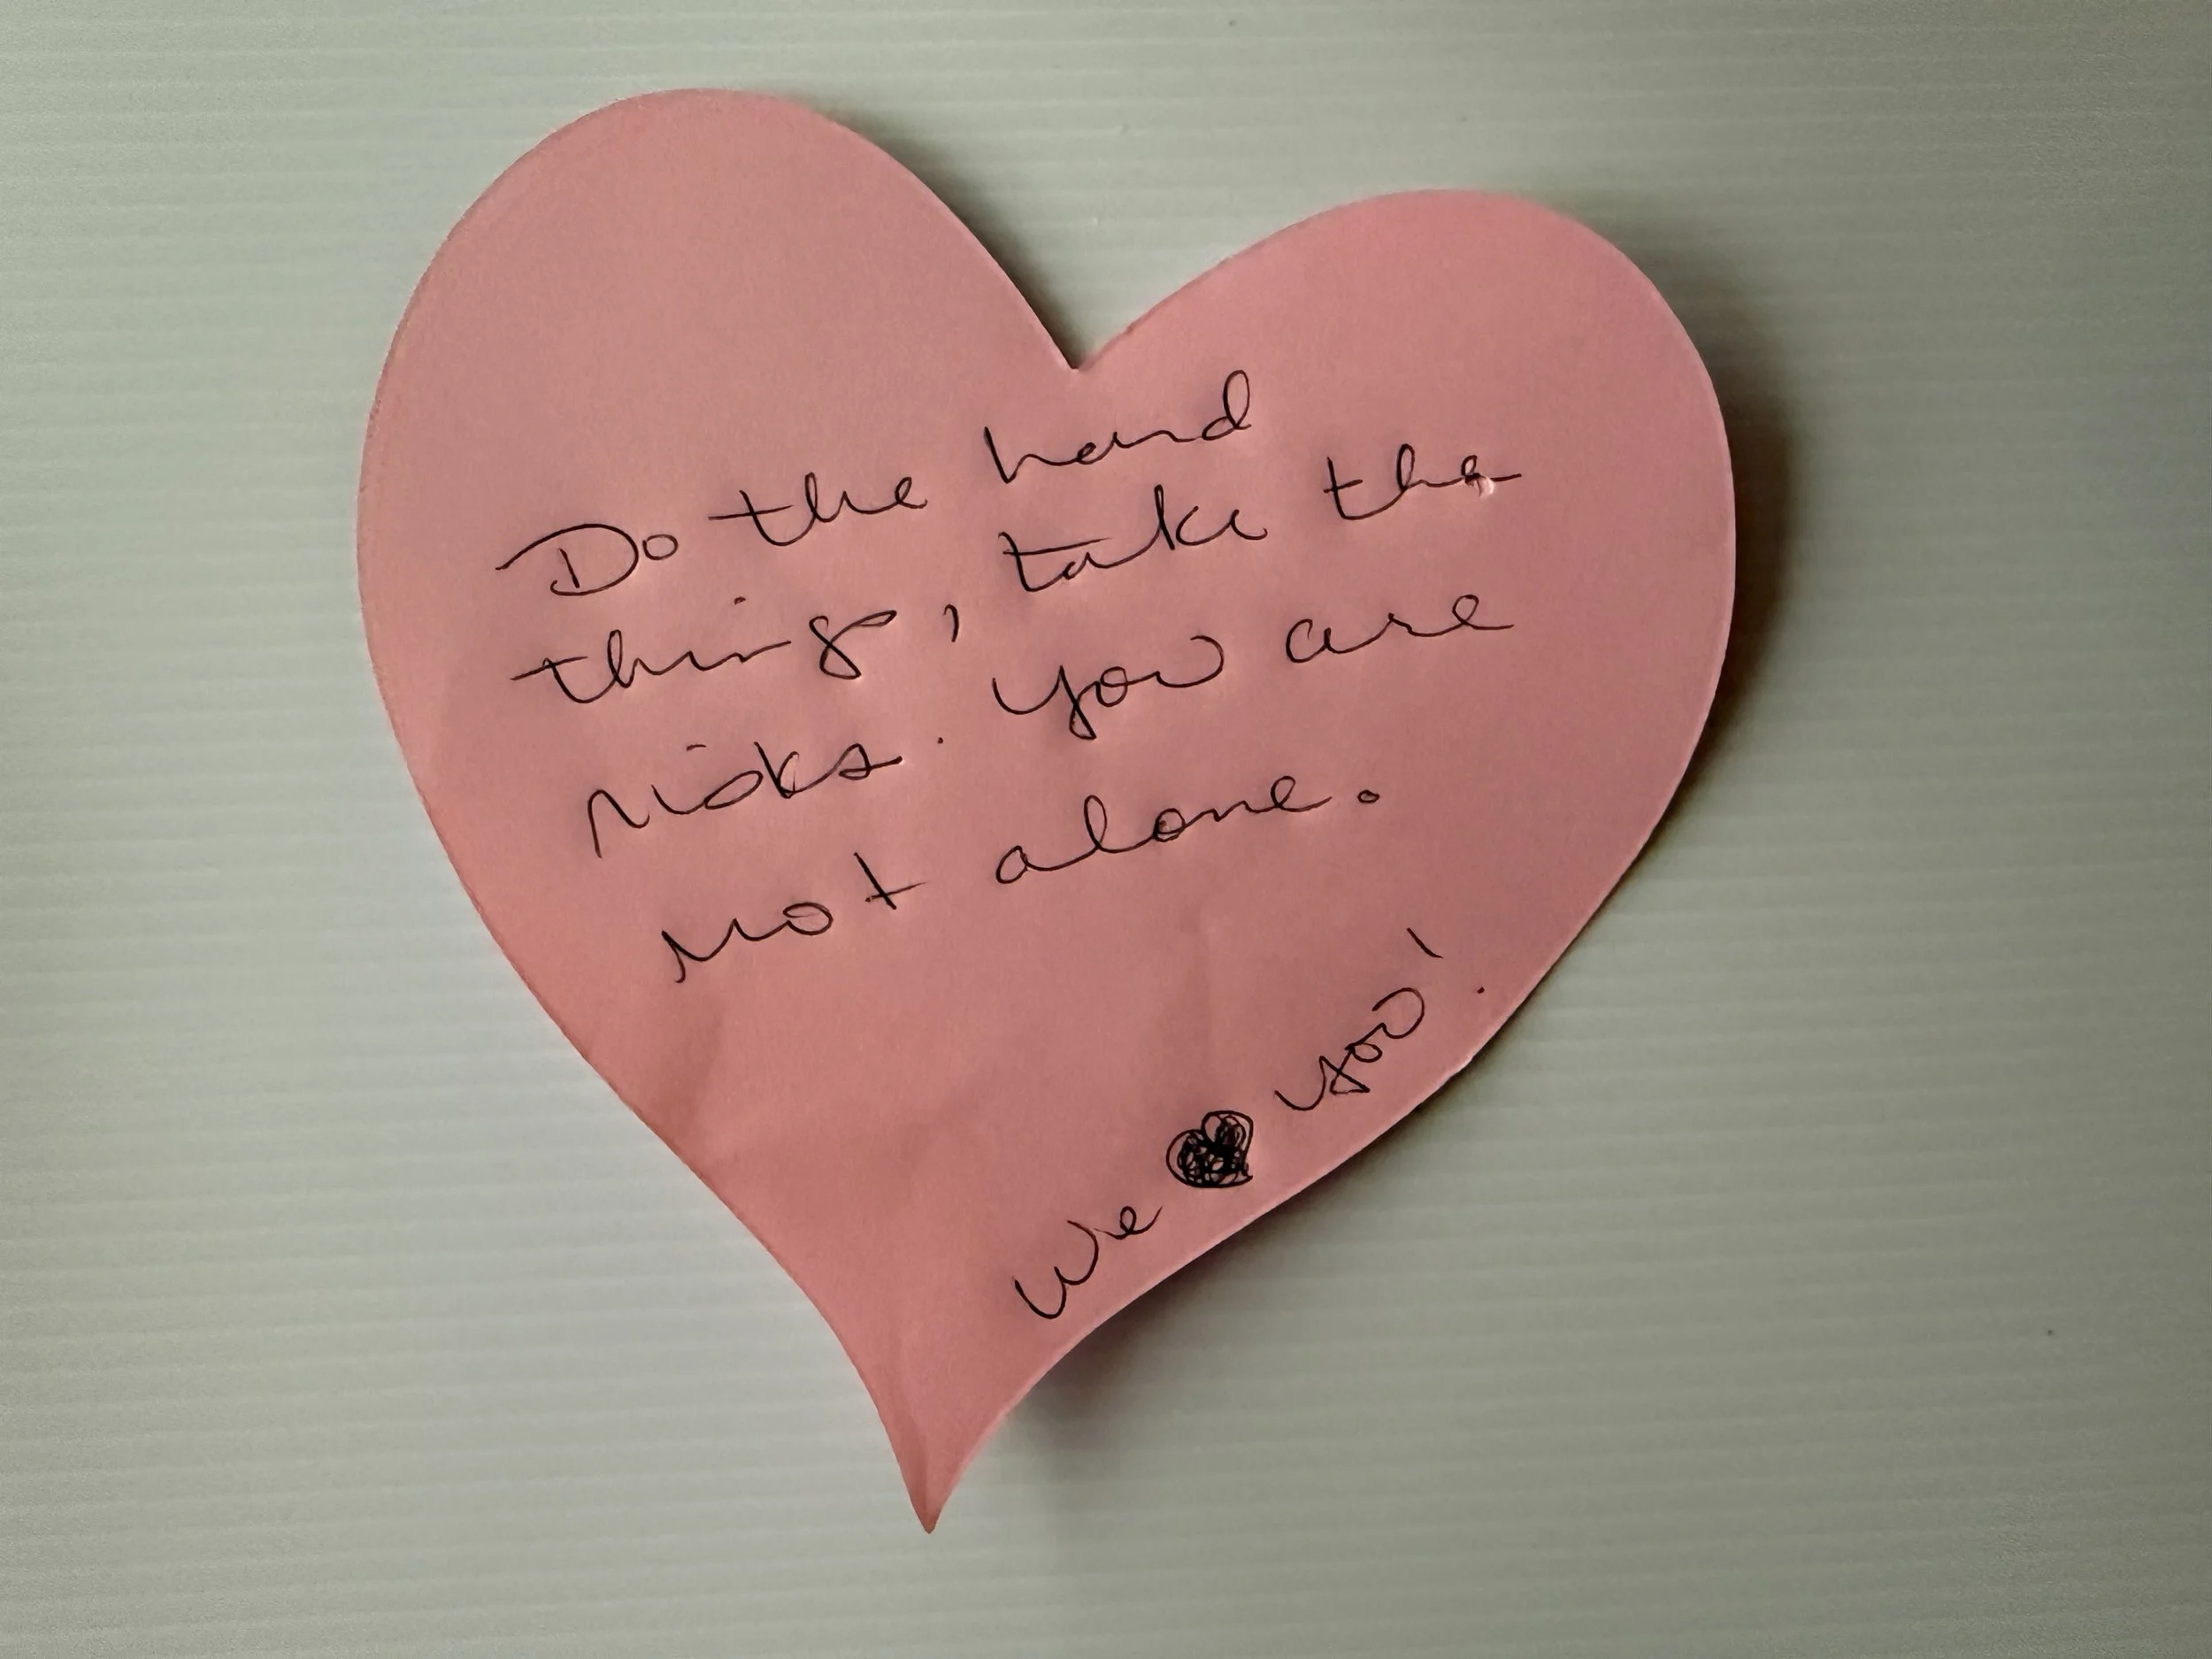 Do the hard
things, take the
risks. You are
not alone.
We ♥ you!